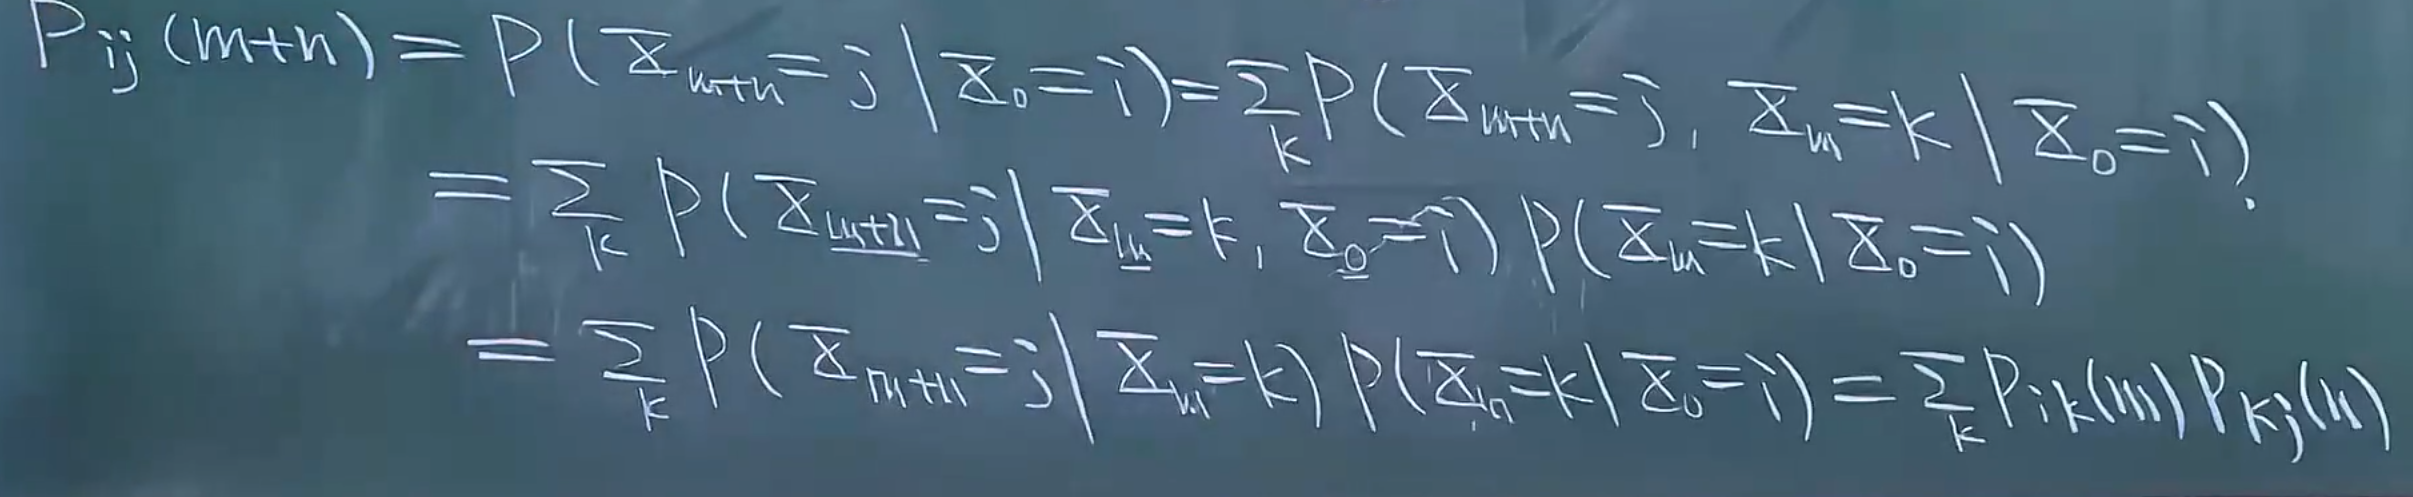 P_{ij}(m+n) = P(X_{m+n}=j | X_0=i) = Σ_k P(X_{m+n}=j, X_m=k | X_0=i).
= Σ_k P(X_{m+n}=j | X_m=k, X_0=i) P(X_m=k | X_0=i)
= Σ_k P(X_{m+n}=j | X_m=k) P(X_m=k | X_0=i) = Σ_k P_{ik}(m) P_{kj}(n)